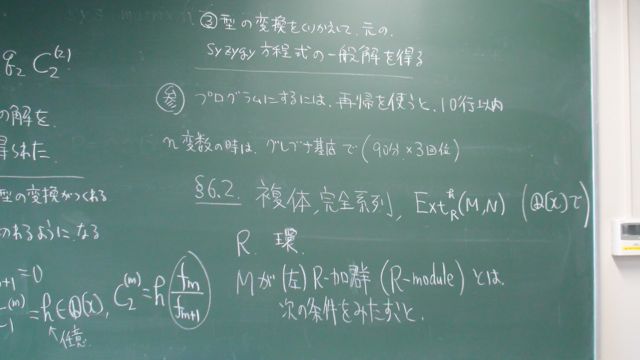 ③型の変換をくりかえして、元の
syzygy 方程式の一般解を得る
参 プログラムにするには、再帰を使うと、10行以内
n変数の時は、グレブナ基底で(90分×3回位)
§6.2. 複体、完全系列, Ext^k_R(M,N) (Q[x]で)
R 環.
Mが(左)R-加群(R-module)とは、
次の条件をみたすこと.
g_2 C_2^(2)
の解を
得られた.
型の変換がつくれる
われるようになる
m+1 = 0
= h∈Q[x], C_2^(m) = h f_m / f_m+1
任意